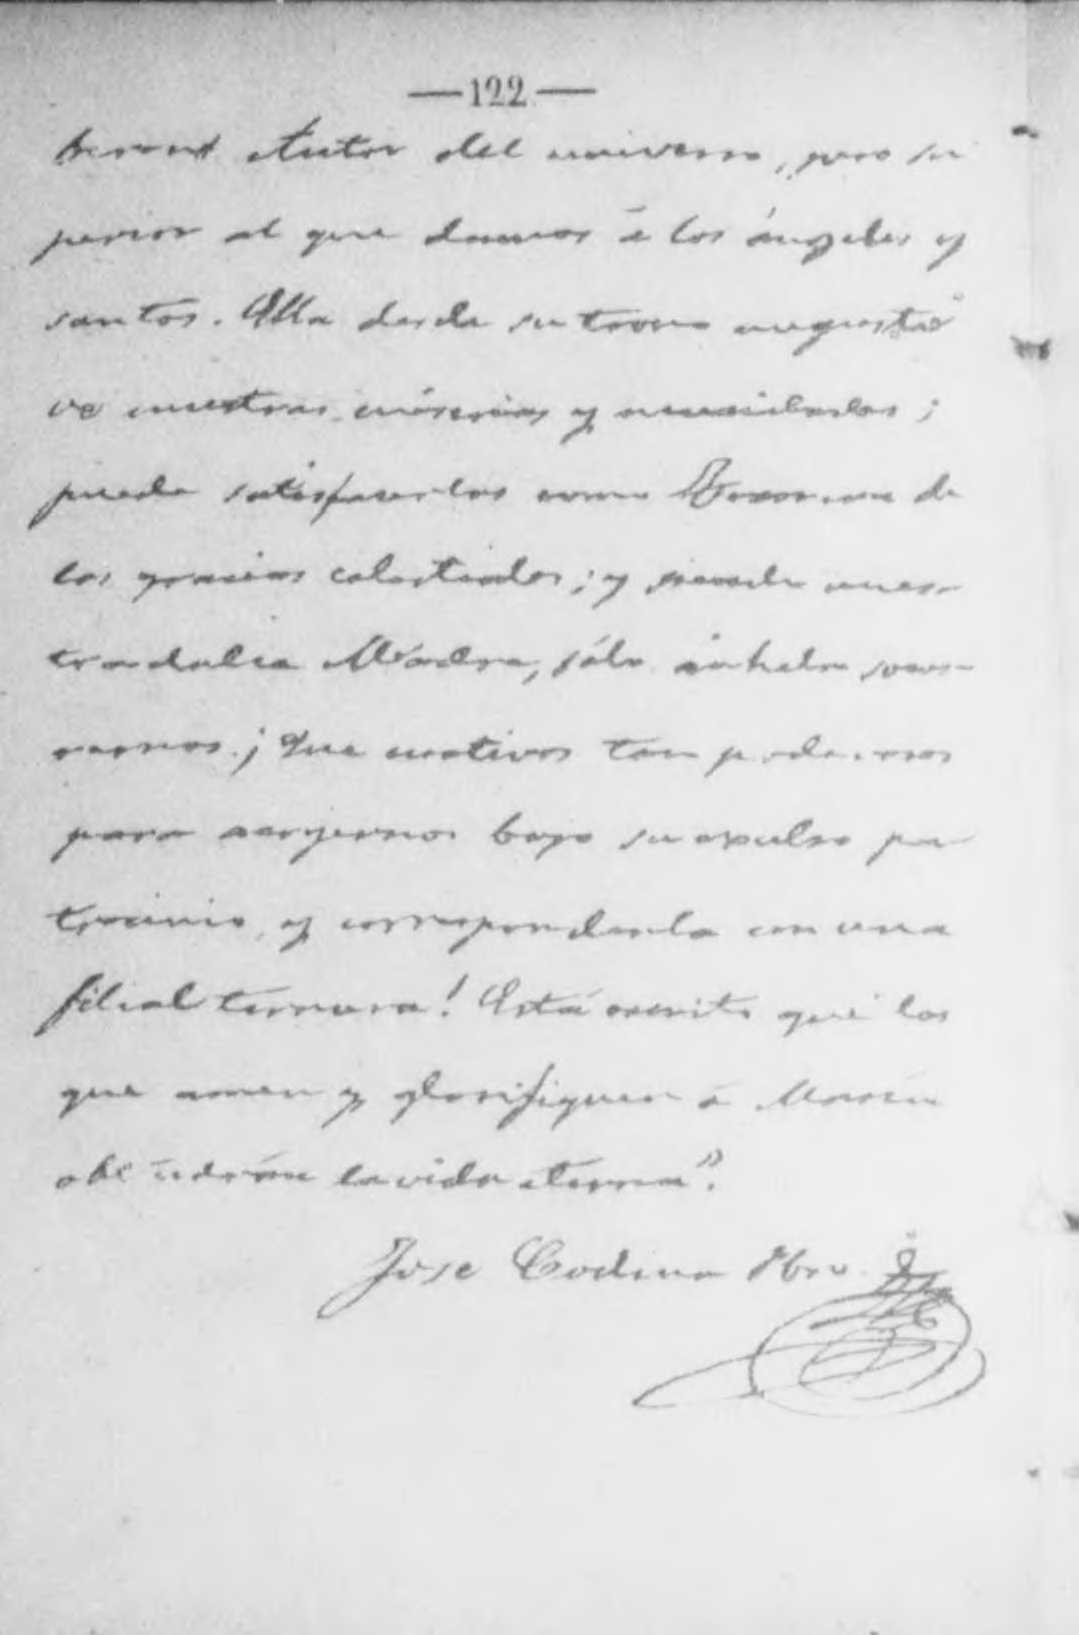 —122—
berano Autor del universo, pero su
perior al que damos á los ángeles y
santos. Ella desde su trono augusto
ve nuestras miserias y necesidades;
puede satisfacerlas como Tesorera de
las gracias celestiales; y siendo nues-
tra dulce Madre, sólo anhela soco-
rrernos. ¡Que motivos tan poderosos
para acogernos bajo su excelso pa
trocinio, y corresponderla con una
filial ternura! Está escrito que los
que amen y glorifiquen á María
obtendrán la vida eterna".
Jose Codina Pbro.